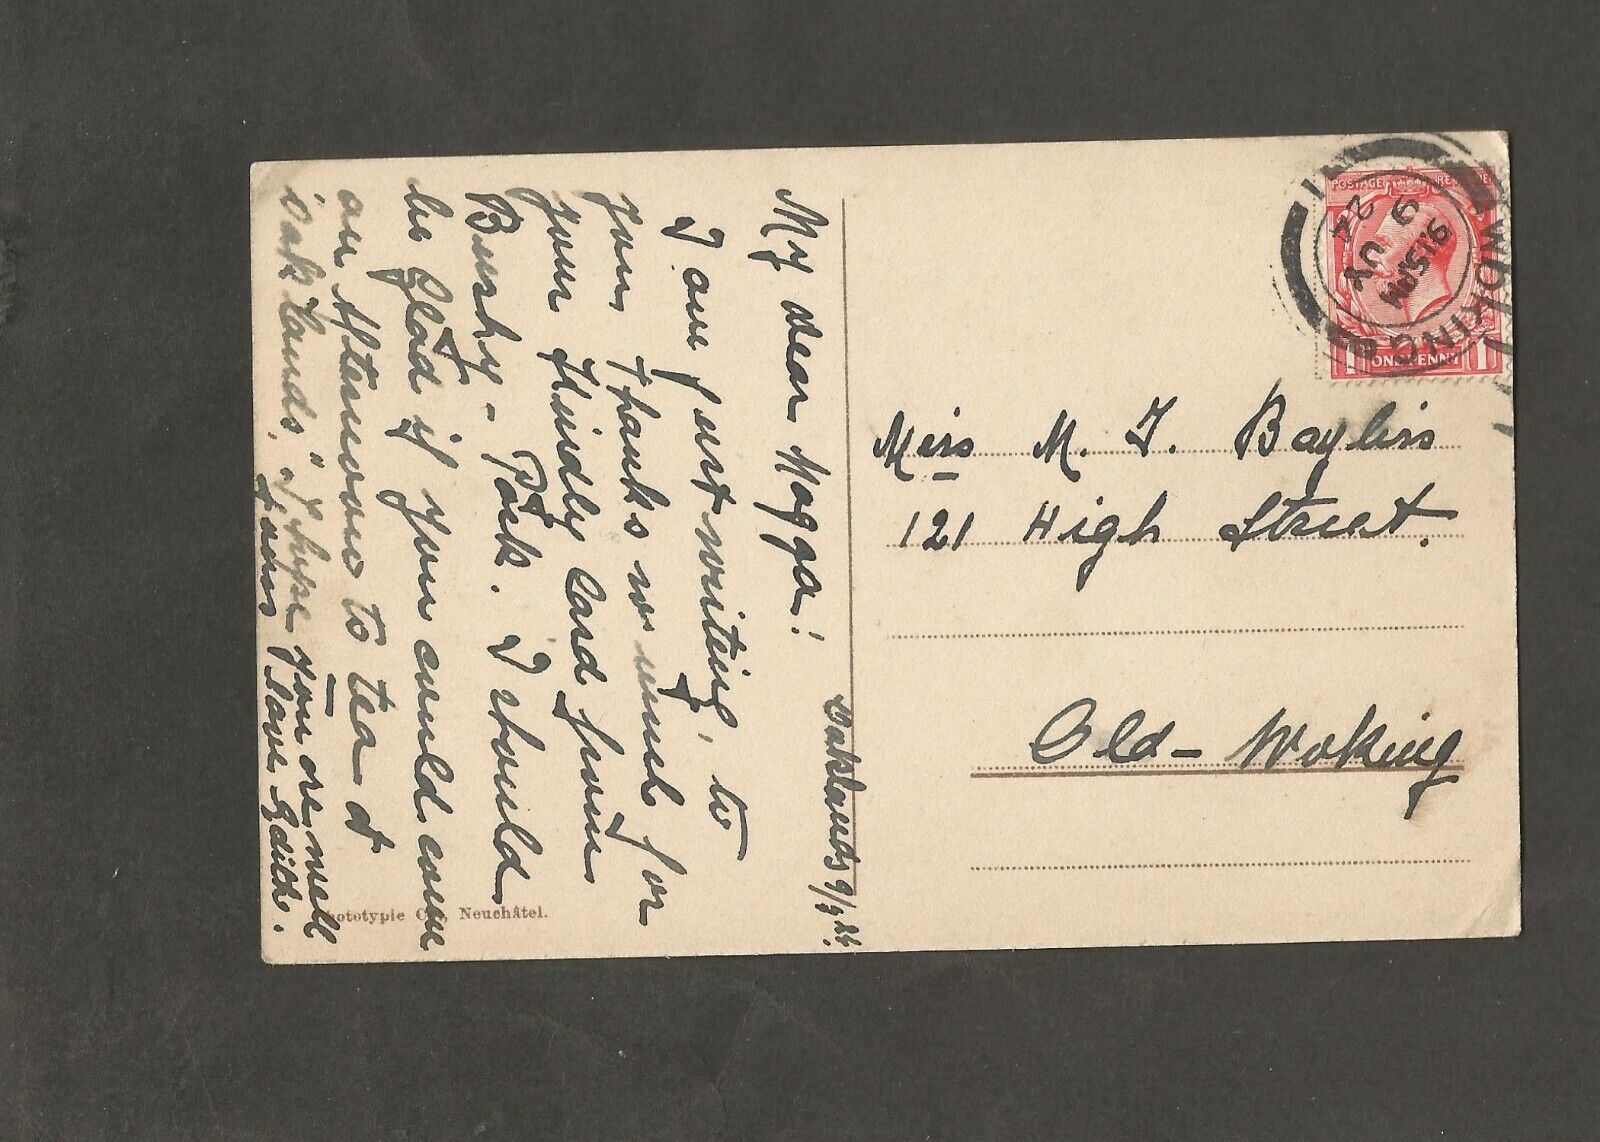 Oaklands 9/9.24.
My dear Magga!
I am just writing, to
you, Thanks so much for
your Kindly Card from
Bushy-Park. I should
be Glad if you could come
an Afternoon to tea at
Oaklands, I hope you are well
Love Edith.
Phototypie Co., Neuchâtel.
POSTAGE REVENUE
ONE PENNY
WOKING
9.15 AM
9
24
Miss M. J. Bayliss
121 High Street.
Old-Woking